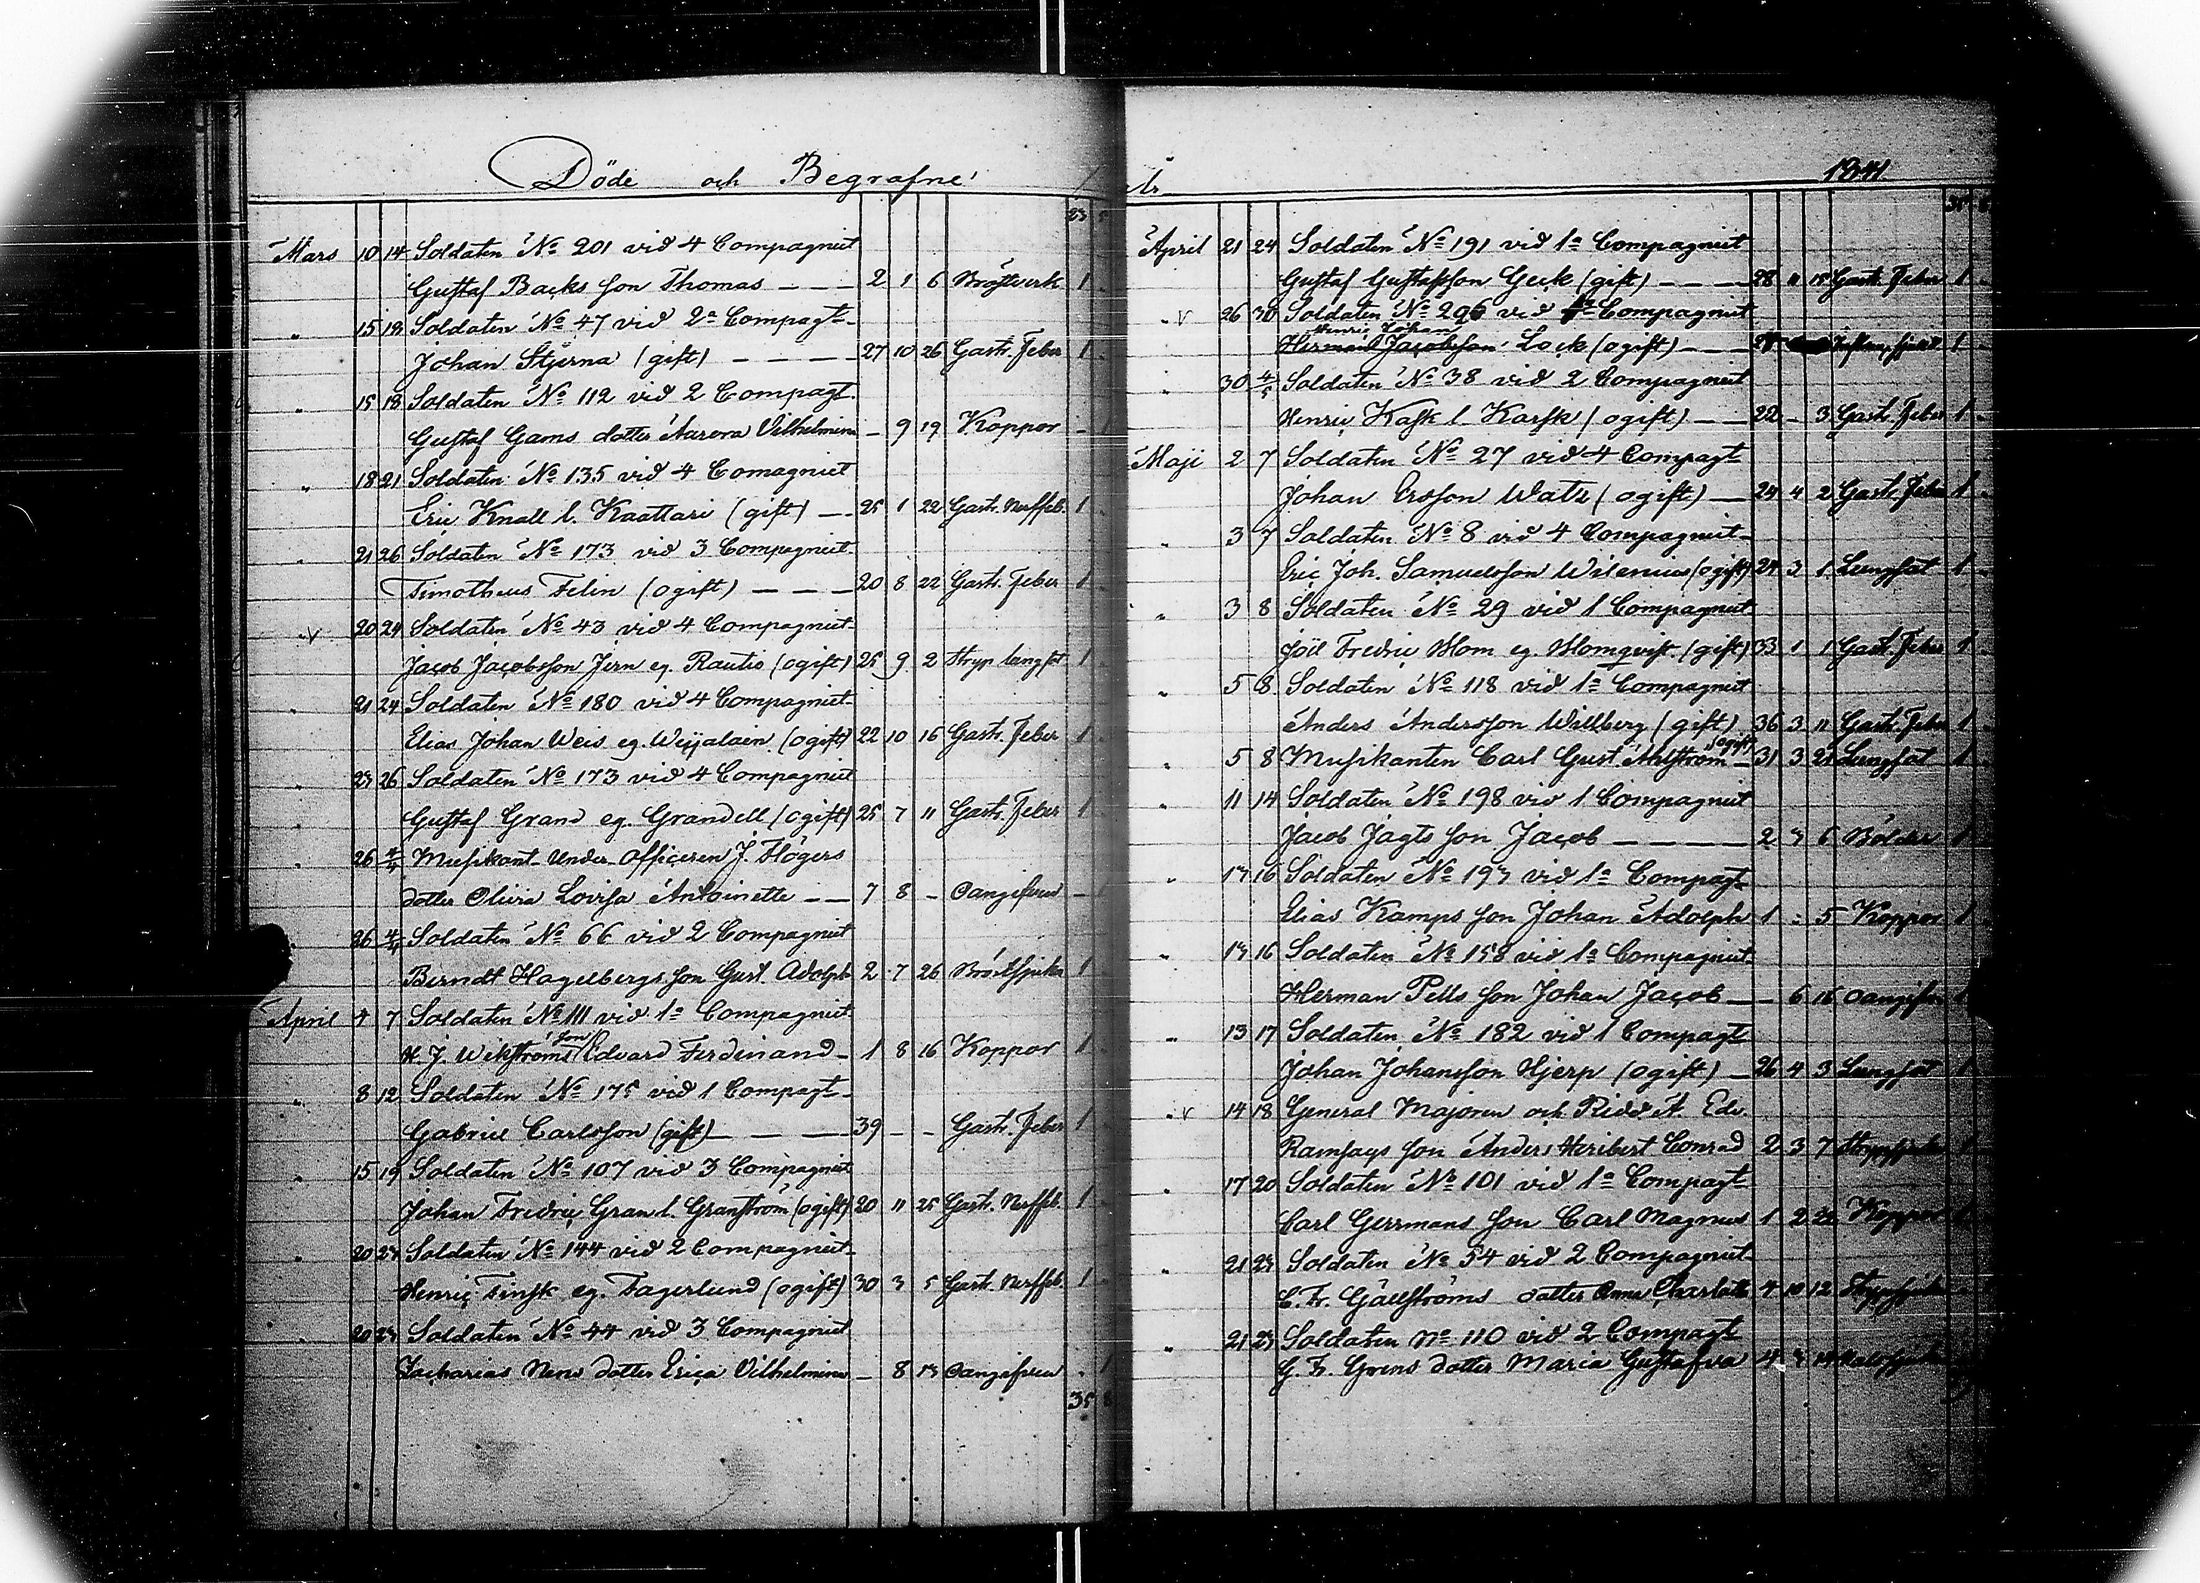 Döde och Begrafne år 1841
23
Mars 10 14 Soldaten No 201 vid 4 Compagniet
Gustaf Backs son Thomas — — — 2 1 6 Bröstverk 1
" 15 18 Soldaten No 47 vid 2a Compagt
Johan Stjerna (gift) — — — — 27 10 26 Gastr. Feber 1
" 15 18 Soldaten No 112 vid 2 Compagt.
Gustaf Gams dotter Aurora Vilhelmina — 9 19 Koppor - 1
" 18 21 Soldaten No 135 vid 4 Comagniet
Eric Knall l. Kaattari (gift) — 25 1 22 Gastr. Nerffeb. 1
" 21 26 Soldaten No 173 vid 3 Compagniet
Timotheus Felin (ogift) — — — 20 8 22 Gastr. Feber 1
" v 20 24 Soldaten No 43 vid 4 Compagniet
Jacob Jacobsson Jern eg. Rautio (ogift) 25 9 2 Stryp lungsot 1
" 21 24 Soldaten No 180 vid 4 Compagniet
Elias Johan Weis eg. Weijalain (ogift) 22 10 16 Gastr. Feber 1
" 23 26 Soldaten No 173 vid 4 Compagniet
Gustaf Grand eg. Grandell (ogift) 25 7 11 Gastr. Feber 1
" 26 4/4 Musikant Under officeren J. Högers
dotter Olivia Lovisa Antoinette — — 7 8 - Oangifven -
" 26 4/4 Soldaten No 66 vid 2 Compagniet
Berndt Hagelbergs son Gust. Adolph 2 7 26 Bröstsjuka 1
April 4 7 Soldaten No 111 vid 1a Compagniet
H. J. Wikströms son Edvard Ferdinand — 1 8 16 Koppor 1
" 8 12 Soldaten No 175 vid 1 Compagt
Gabriel Carlsson (gift) — — — 39 - - Gastr. Feber 1
" 15 19 Soldaten No 107 vid 3 Compagniet
Johan Fredric Gran l. Granström (ogift) 20 11 25 Gastr. Nerffeb. 1
" 20 23 Soldaten No 144 vid 2 Compagniet
Henric Finsk eg. Fagerlund (ogift) 30 3 5 Gastr. Nerffeb. 1
" 20 23 Soldaten No 44 vid 3 Compagniet
Zacharias Nens dotter Erica Vilhelmina — 8 13 Oangifven - 1
35 8
April 21 24 Soldaten No 191 vid 1a Compagniet
Gustaf Gustafsson Geck (gift) — — — 28 11 15 Gastr. Feber 1
" v 26 30 Soldaten No 296 vid Compagniet
Henric Johan
Herman Jacobsson Lock (ogift) — — 28 1
" 30 4/5 Soldaten No 38 vid 2 Compagniet
Henric Kask l. Karsk (ogift) — — 22 - 3 Gastr. Feber 1
Maji 2 7 Soldaten No 27 vid 4 Compagt
Johan Ersson Watz (ogift) — 24 4 2 Gastr. Feber 1
" 3 7 Soldaten No 8 vid 4 Compagniet
Eric Joh. Samuelsson Wilenius (ogift) 24 3 1 Lungsot 1
" 3 8 Soldaten No 29 vid 1 Compagniet
Joil Fredric Blom eg. Blomqvist (gift) 33 1 1 Gastr. Feber 1
" 5 8 Soldaten No 118 vid 1a Compagniet
Anders Andersson Willberg (gift) 36 3 11 Gastr. Feber 1
" 5 8 Musikanten Carl Gust Ahlström (ogift) — 31 3 21 Lungsot 1
" 11 14 Soldaten No 198 vid 1 Compagniet
Jacob Jagts son Jacob — — — — 2 3 6 Bölder 1
" 13 16 Soldaten No 193 vid 1a Compagt
Elias Kamps son Johan Adolph 1 - 5 Koppor 1
" 13 16 Soldaten No 158 vid 1a Compagniet
Herman Pells son Johan Jacob — - 6 16 Oangifven 1
" 13 17 Soldaten No 182 vid 1 Compagt
Johan Johansson Hjerp (ogift) — 26 4 3 Lungsot 1
" v 14 18 General Majoren och Ridd. A. Edv.
Ramsays son Anders Heribert Conrad 2 3 7 Strypsjuka 1
" 17 20 Soldaten No 101 vid 1a Compagt
Carl Germans son Carl Magnus 1 2 Koppor 1
" 21 23 Soldaten No 54 vid 2 Compagniet
C. Fr. Gällströms dotter Anna Charlotta 4 10 12 Strypsjuka
" 21 23 Soldaten No 110 vid 2 Compagt
G. Fr. Grens dotter Maria Gustafva 4 3 14 Halssjuka